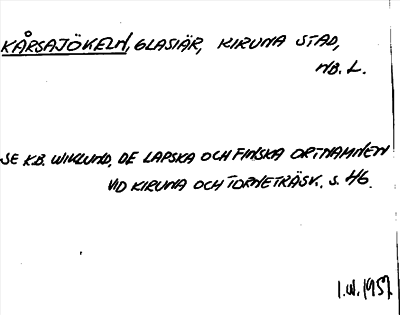 KÅRSAJÖKELN, GLASIÄR, KIRUNA STAD,
NB. L.
SE K.B. WIKLUND, DE LAPSKA OCH FINSKA ORTNAMNEN
VID KIRUNA OCH TORNETRÄSK. S. 46.
I.W. 1957.